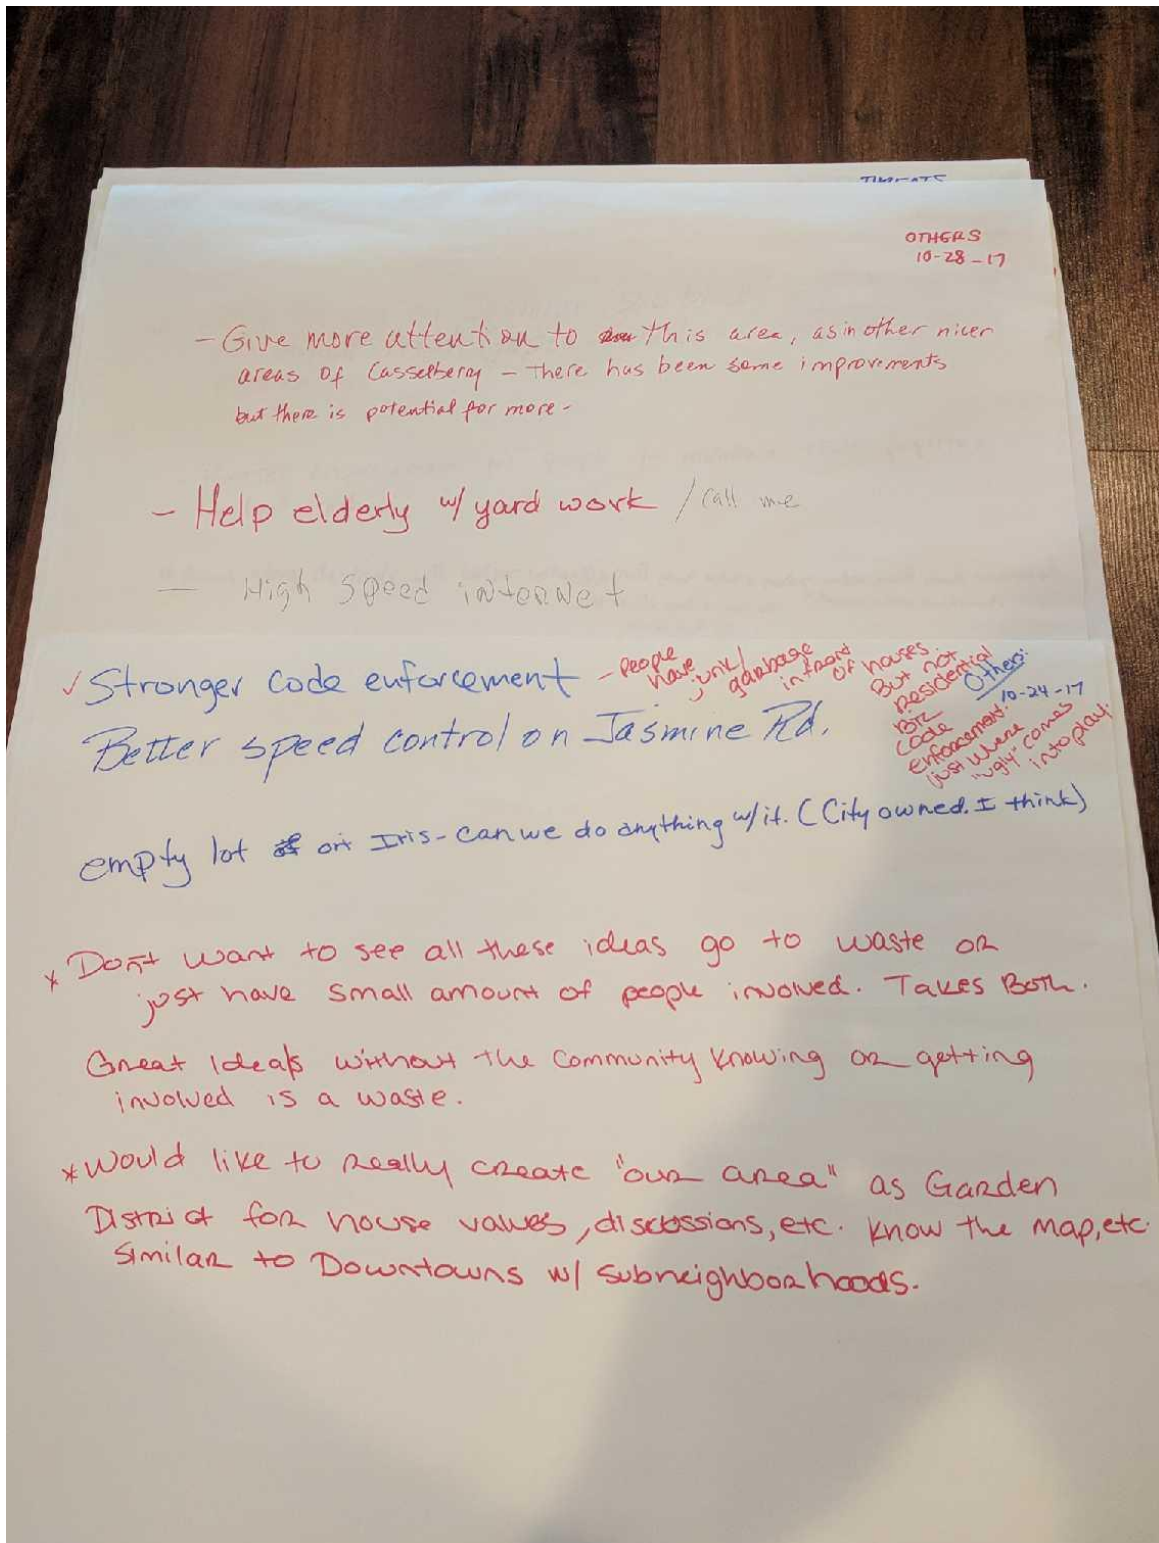 THREATS
OTHERS
10-28-17
- Give more attention to this area, as in other nicer
areas of Casselberry - There has been some improvements
but there is potential for more -
- Help elderly w/ yard work / call me
- High Speed internet
✓ Stronger code enforcement - people
have
junk/
garbage
in front
of houses.
But not
Residential
Biz
Code
enforcement.
just where
"ugly" comes
into play.
Others:
10-24-17
Better speed control on Jasmine Rd.
empty lot on Iris - can we do anything w/ it. (City owned. I think)
* Don't want to see all these ideas go to waste or
just have small amount of people involved. Takes Both.
Great Ideas without the community knowing or getting
involved is a waste.
* Would like to really create "our area" as Garden
District for house values, discussions, etc. Know the map, etc.
Similar to Downtowns w/ subneighborhoods.